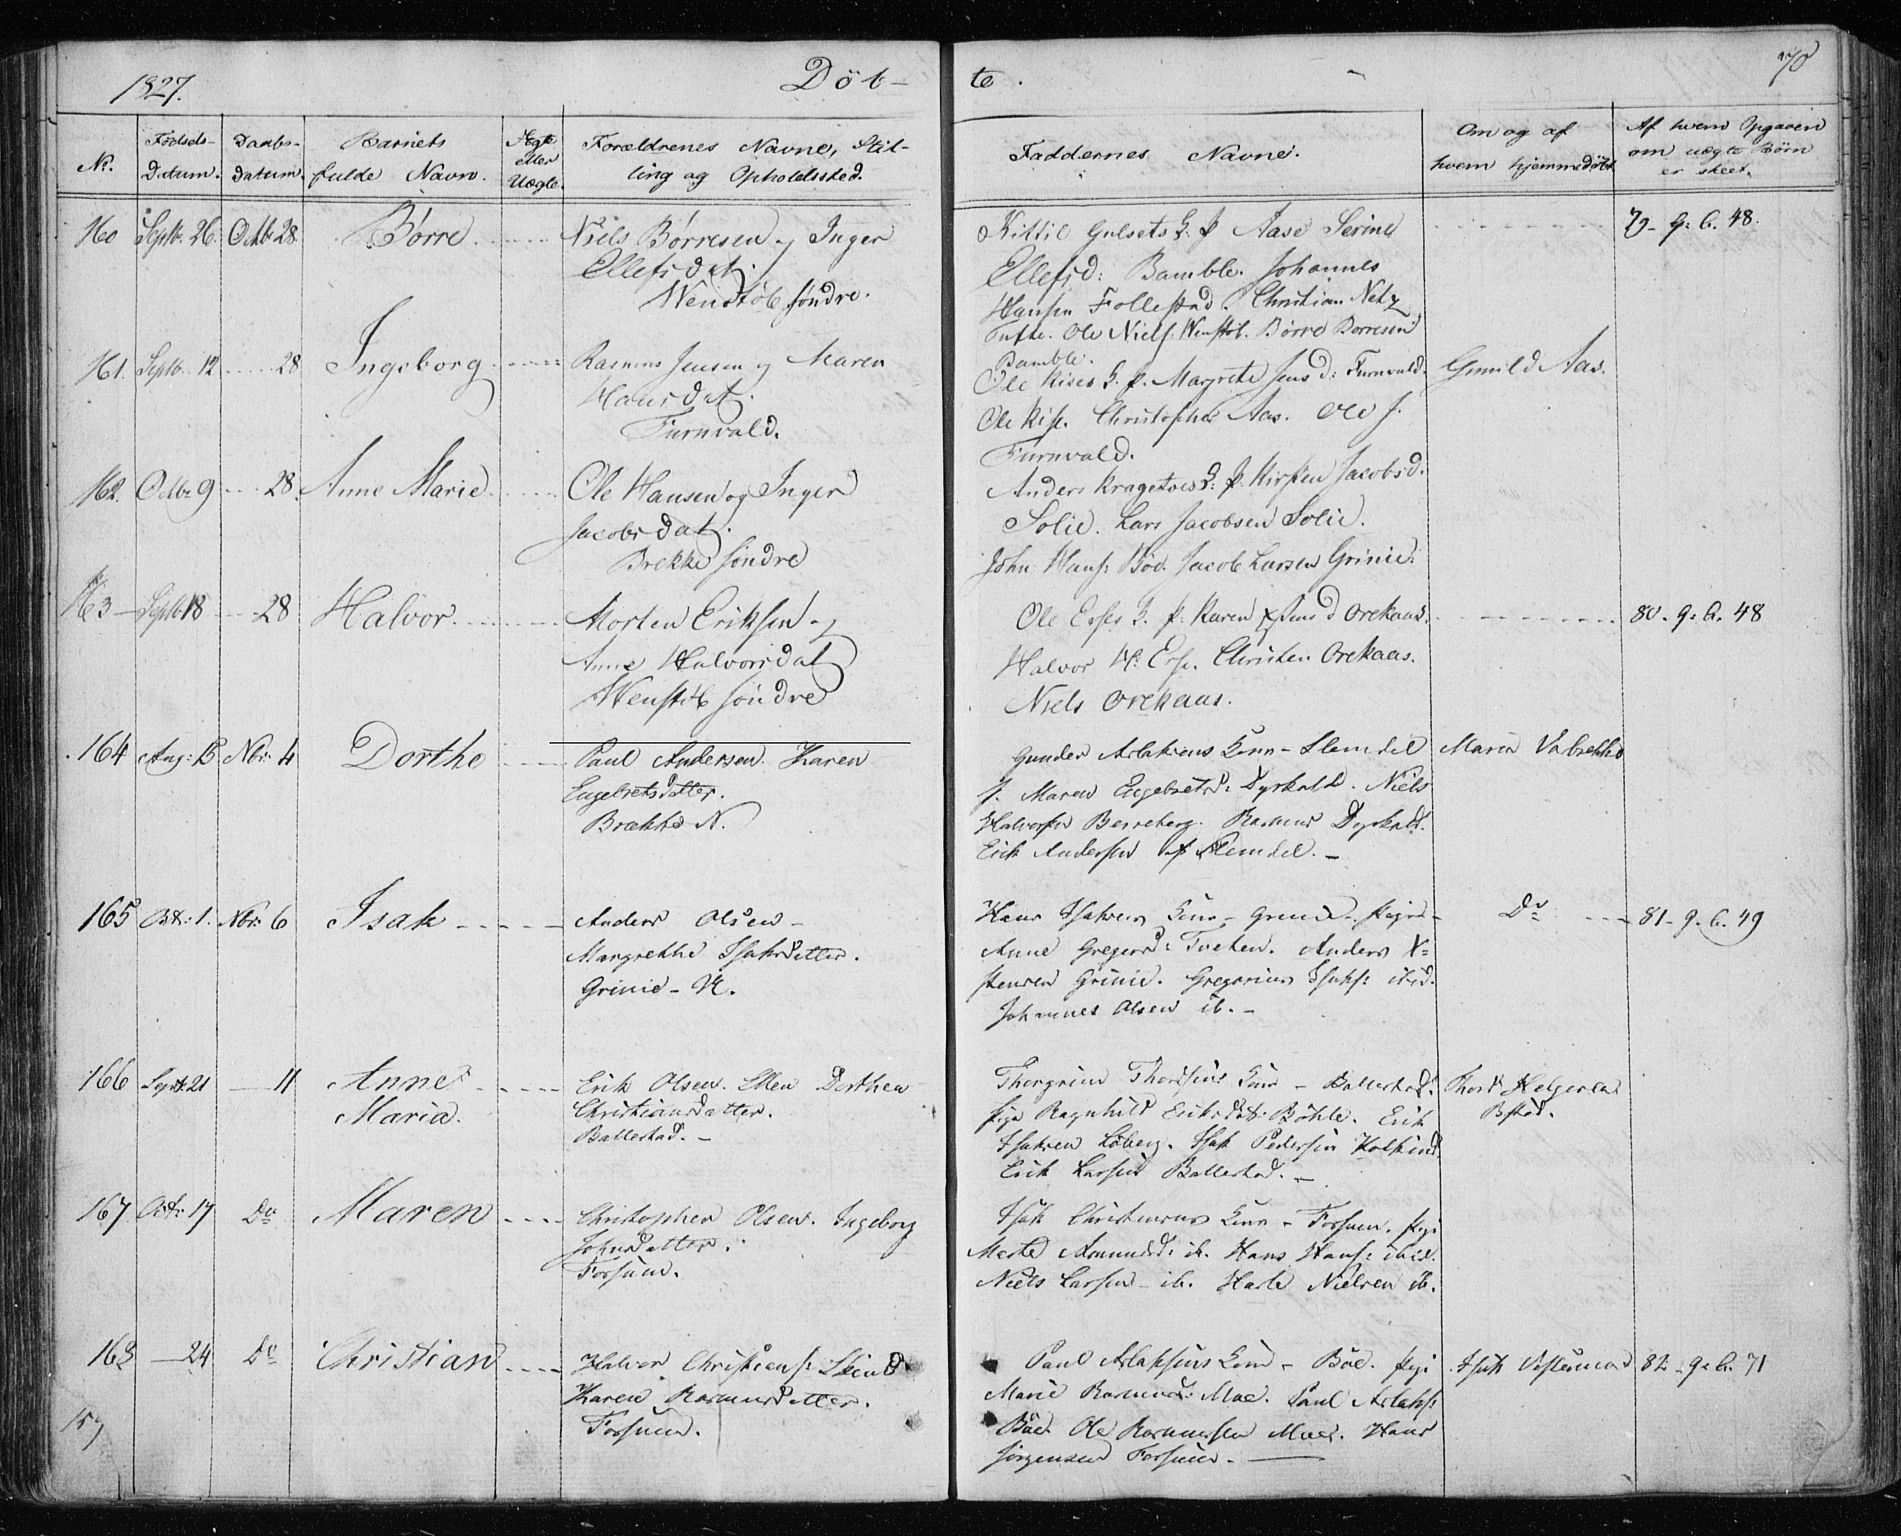 1827.
Döb-
te.
70
No.
Födsels-
Datum.
Daabs-
Datum.
Barnets
fulde Navn.
Ægte
eller
Uægte.
Forældrenes Navne, Stil-
ling og Opholdssted.
Faddernes Navne.
Om og af
hvem hjemmedöbt
Af hvem Opgaven
om uægte Börn
er skeet.
160 Septb: 26. Octbr 28 Børre Niels Børresen og Inger
Ellefsdat.
Wenstöb söndre.
Kittil Gulsets K: P. Aase Serine
Ellefsd: Bamble. Johannes
Hansen Follestad. Christian
Tufte. Ole Niels. Wenstöb. Børre Borresen
Bamble.
79 - g: b. 48.
161. Septb. 12 28 Ingeborg Rasmus Jensen og Maren
Hansdat.
Furuvald.
Ole Rises K. P. Margrete Jensd: Furuvald.
Ole Rise. Christopher Aas. Ole J.
Furuvald.
Gunild Aas.
162. Octbr 9 28. Anne Marie Ole Hansen og Inger
Jacobsdat.
Brekke söndre
Anders K: P. Kirsten Jacobsd.
Solie. Lars Jacobsen Solie.
John Hans: Böe. Jacob Larsen Grinie.
163 Septb 18 28 Halvor Morten Eriksen og
Anne Halvorsdat
Wenstöb söndre
Ole K. P. Karen Jensd Orekaas.
Halvor Christen Orekaas.
Niels Orekaas.
80 - g. b. 48
164 Aug: 15 Nbr: 4 Dorthe Paul Andersen. Karen
Engebretsdatter.
Brække N.
Gunder Aslaksens Kone - Slemdel
P. Maren Engebretsd: Dyrkold. Niels
Halvorsen Berreberg. Rasmus Dyrkold.
Erik Andersen Slemdel. -
Maria
165 Oct: 1. Nbr: 6 Isak Anders Olsen -
Margrethe Isaksdatter.
Grinie - N.
Hans Isaksens Kone - Pige -
Anne Gregersd: Tveten. Anders X-
stensen Grinie. Gregorius Isaks: ibid.
Johannes Olsen ib. -
Do
81 - g. b. 49
166 Sept: 21 11 Anne
Maria.
Erik Olsen. Ellen Dorthea
Christiansdatter.
Ballestad. -
Thorgrim Kone - Ballestad.
Pige Ragnhild Eriksdat: Böhle. Erik
Isaksen Löberg. Isak Pedersen
Erik Larsen Ballestad. -
167 Oct: 17 Do Maren Christopher Olsen. Ingeborg
Johnsdatter.
Fossum.
Isak Christensens Kone - Fossum. Pige
Marte Amundsd: ib. Hans Hans: ibid.
Niels Larsen - ib. Nielsen ib.
168 - 24 Do Christian Halvor Christians:
Karen Rasmusdatter.
Fossum.
Paul Aslaksens Kone - Böe. Pige
Marie Rasmusd: Moe. Paul Aslaks:
Böe. Ole Rasmussen Moe. Hans
Jörgensen Fossum. -
Isak
82 - g. b. 71
157